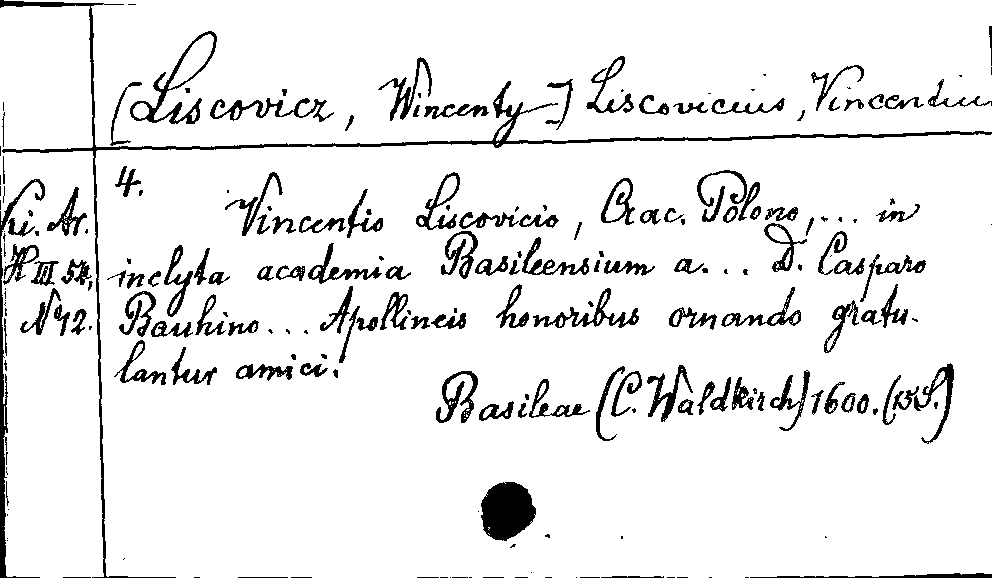 [Liscovicz, Wincenty=] Liscovicius, Vincentius
4.
Vincentio Liscovicio, Crac. Polono, ... in
inclyta academia Basileensium a... D. Casparo
Bauhino... Apollineis honoribus ornando gratu-
lantur amici.
Basileae (C. Waldkirch) 1600. (15S.)
Ki. Ar.
H III 54,
No 12.